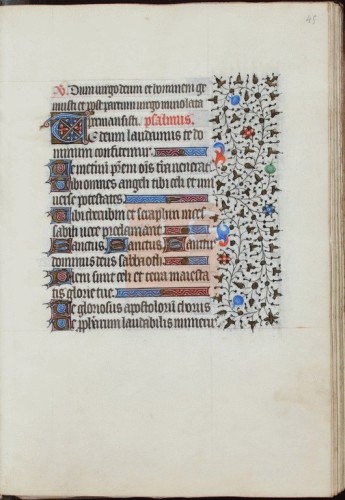 45
dium virgo deum et hominem ge
nuisti et post partum virgo inviolata
permansisti. psalmus.
Te deum laudamus te do
minum confitemur.
Te eternu prem ois tra veneratr.
Tibi omnes angeli tibi celi et uni
verse potestates.
Tibi cherubin et seraphin inces
sabili voce proclamant.
Sanctus. Sanctus. Sanctus
dominus deus sabbaoth.
Pleni sunt celi et terra maiesta
tis glorie tue.
Te gloriosus apostoloru chorus
Te prophetarum laudabilis numerus